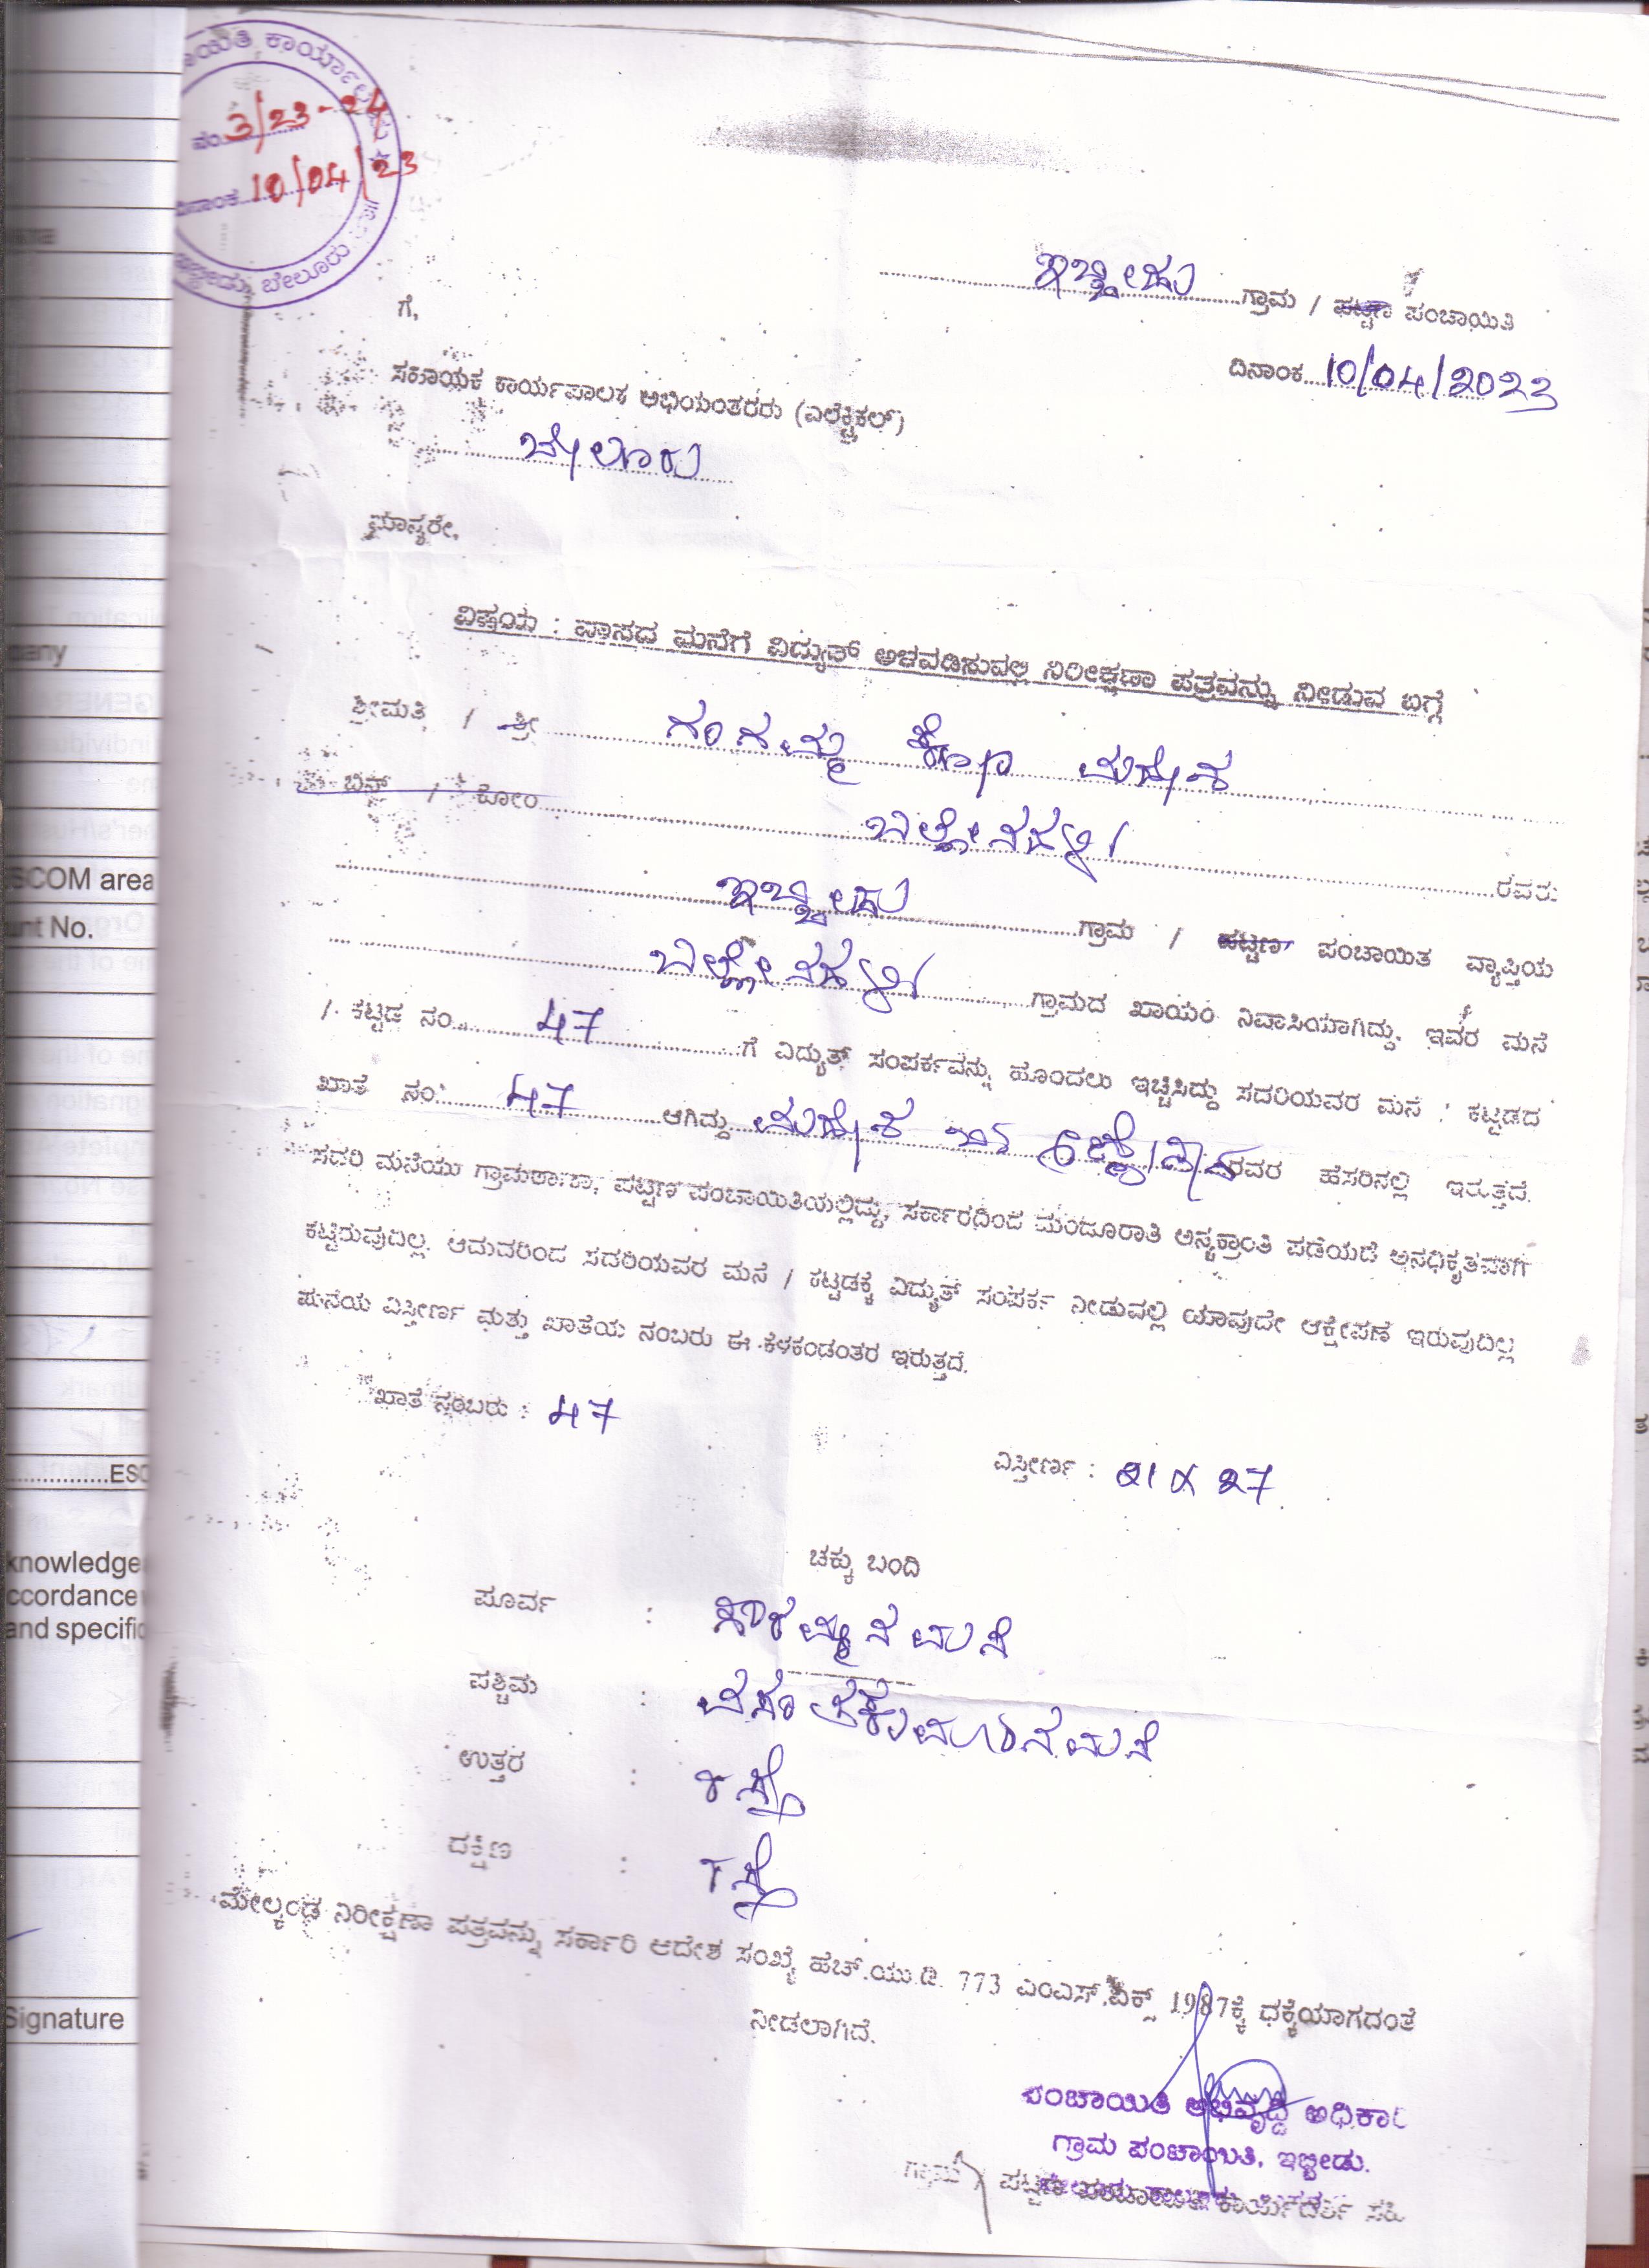 ಕಾರ್ಯಾಲಯ
ನಂ. 3/23-24
ದಿನಾಂಕ 10/04/23
ಬೇಲೂರು
ಇಬ್ಬೀಡು ಗ್ರಾಮ / ಪಟ್ಟಣ ಪಂಚಾಯಿತಿ
ದಿನಾಂಕ 10/04/2023
ಗೆ,
ಸಹಾಯಕ ಕಾರ್ಯಪಾಲಕ ಅಭಿಯಂತರರು (ಎಲೆಕ್ಟ್ರಿಕಲ್)
ಬೇಲೂರು
ಮಾನ್ಯರೇ,
ವಿಷಯ : ವಾಸದ ಮನೆಗೆ ವಿದ್ಯುತ್ ಅಳವಡಿಸುವಲ್ಲಿ ನಿರೀಕ್ಷಣಾ ಪತ್ರವನ್ನು ನೀಡುವ ಬಗ್ಗೆ
ಶ್ರೀಮತಿ / ಶ್ರೀ ಗಂಗಮ್ಮ ಕೋಂ ಮಹೇಶ
ಬಿನ್ / ಕೋಂ ಬಲ್ಲೇನಹಳ್ಳಿ ರವರು
ಇಬ್ಬೀಡು ಗ್ರಾಮ / ಪಟ್ಟಣ ಪಂಚಾಯಿತ ವ್ಯಾಪ್ತಿಯ
ಬಲ್ಲೇನಹಳ್ಳಿ ಗ್ರಾಮದ ಖಾಯಂ ನಿವಾಸಿಯಾಗಿದ್ದು, ಇವರ ಮನೆ
/ ಕಟ್ಟಡ ನಂ. 47 ಗೆ ವಿದ್ಯುತ್ ಸಂಪರ್ಕವನ್ನು ಹೊಂದಲು ಇಚ್ಚಿಸಿದ್ದು ಸದರಿಯವರ ಮನೆ / ಕಟ್ಟಡದ
ಖಾತೆ ನಂ. 47 ಆಗಿದ್ದು ಮಹೇಶ ರವರ ಹೆಸರಿನಲ್ಲಿ ಇರುತ್ತದೆ.
ಸದರಿ ಮನೆಯು ಗ್ರಾಮಠಾಣಾ, ಪಟ್ಟಣ ಪಂಚಾಯಿತಿಯಲ್ಲಿದ್ದು, ಸರ್ಕಾರದಿಂದ ಮಂಜೂರಾತಿ ಅನ್ಯಕ್ರಾಂತಿ ಪಡೆಯದೆ ಅನಧಿಕೃತವಾಗಿ
ಕಟ್ಟಿರುವುದಿಲ್ಲ. ಆದುದರಿಂದ ಸದರಿಯವರ ಮನೆ / ಕಟ್ಟಡಕ್ಕೆ ವಿದ್ಯುತ್ ಸಂಪರ್ಕ ನೀಡುವಲ್ಲಿ ಯಾವುದೇ ಆಕ್ಷೇಪಣೆ ಇರುವುದಿಲ್ಲ
ಮನೆಯ ವಿಸ್ತೀರ್ಣ ಮತ್ತು ಖಾತೆಯ ನಂಬರು ಈ ಕೆಳಕಂಡಂತರ ಇರುತ್ತದೆ.
ಖಾತೆ ನಂಬರು : 47
ವಿಸ್ತೀರ್ಣ : 21 X 27
ಚಕ್ಕು ಬಂದಿ
ಪೂರ್ವ : ಮನೆ
ಪಶ್ಚಿಮ : ಮನೆ
ಉತ್ತರ : ರಸ್ತೆ
ದಕ್ಷಿಣ : ರಸ್ತೆ
ಮೇಲ್ಕಂಡ ನಿರೀಕ್ಷಣಾ ಪತ್ರವನ್ನು ಸರ್ಕಾರಿ ಆದೇಶ ಸಂಖ್ಯೆ ಹೆಚ್.ಯು.ಡಿ. 773 ಎಂಎಸ್. 1987ಕ್ಕೆ ಧಕ್ಕೆಯಾಗದಂತೆ
ನೀಡಲಾಗಿದೆ.
ಪಂಚಾಯಿತಿ ಅಭಿವೃದ್ಧಿ ಅಧಿಕಾರಿ
ಗ್ರಾಮ ಪಂಚಾಯಿತಿ, ಇಬ್ಬೀಡು.
ಗ್ರಾಮ / ಪಟ್ಟಣ ಪಂಚಾಯಿತಿ ಕಾರ್ಯದರ್ಶಿ ಸಹಿ
pany
SCOM area
unt No.
ESC
knowledge
ccordance
and specific
Signature